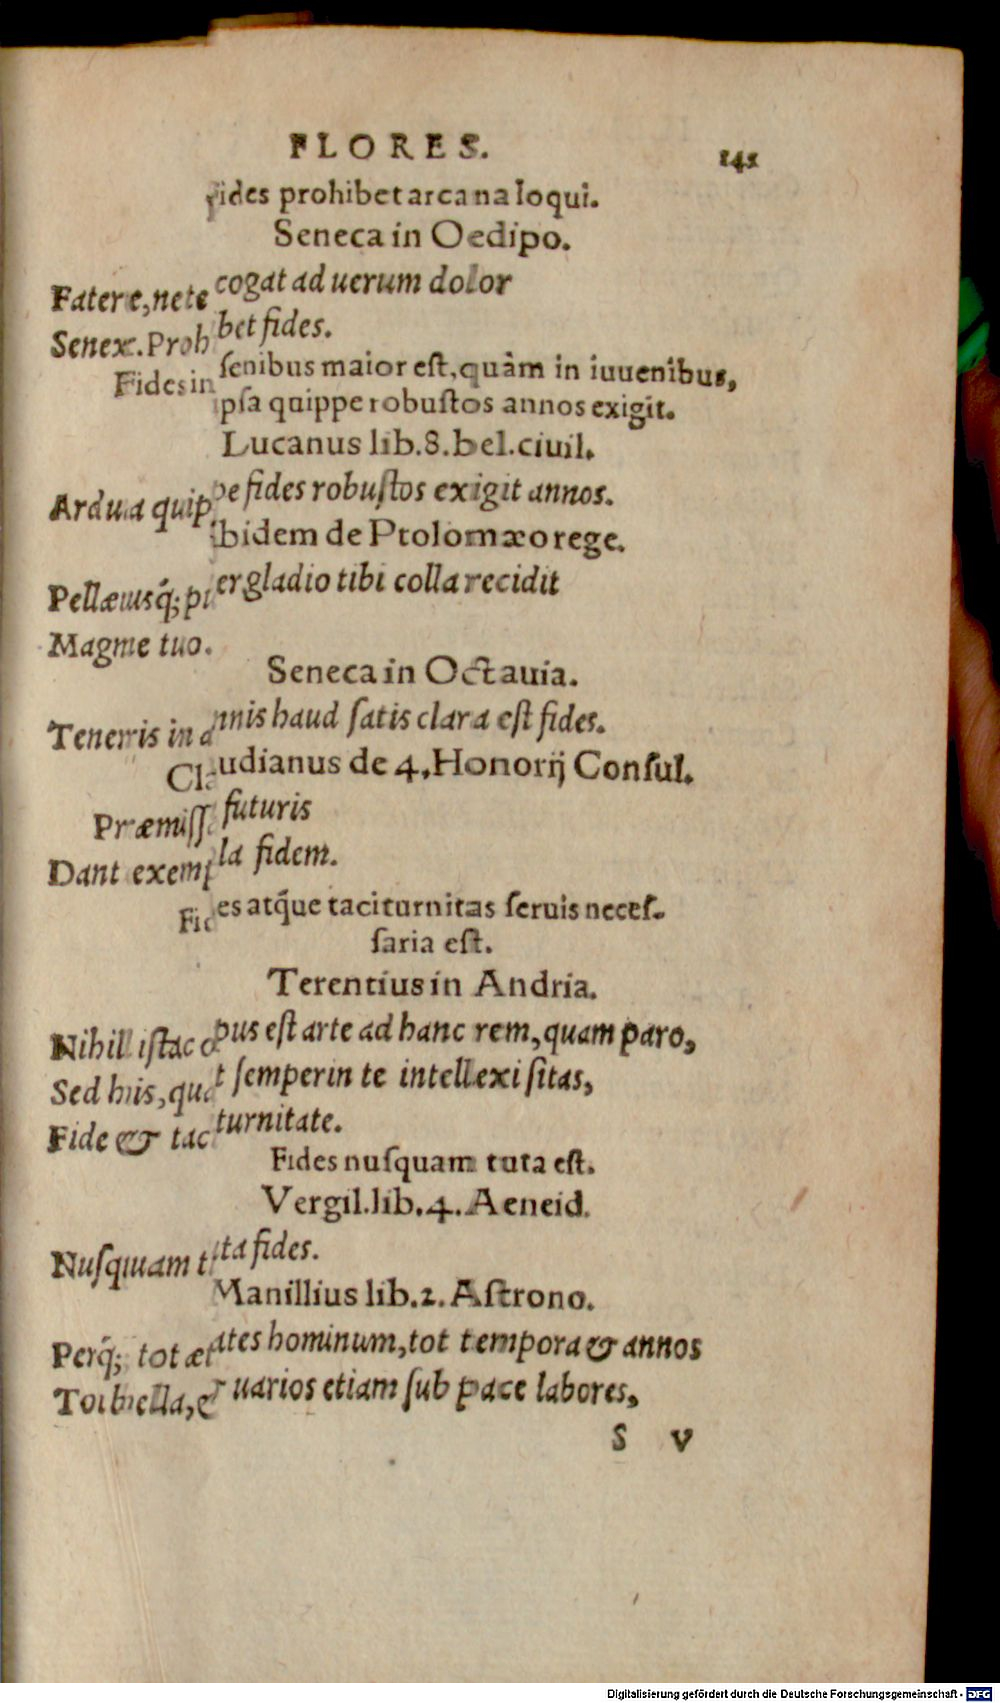 FLORES. 141
Fides prohibet arcana loqui.
Seneca in Oedipo.
Fatere, ne te cogat ad uerum dolor
Senex. Prohbet fides.
Fides in senibus maior est, quàm in iuuenibus,
ipsa quippe robustos annos exigit.
Lucanus lib. 8. bel. ciuil.
Ardua quippe fides robustos exigit annos.
Ibidem de Ptolomæo rege.
Pellæusq́; puer gladio tibi colla recidit
Magne tuo.
Seneca in Octauia.
Teneris in annis haud satis clara est fides.
Claudianus de 4. Honorij Consul.
Præmissa futuris
Dant exempla fidem.
Fides atq́ue taciturnitas seruis neces-
saria est.
Terentius in Andria.
Nihil istac opus est arte ad hanc rem, quam paro,
Sed his, quat semper in te intellexi sitas,
Fide & taciturnitate.
Fides nusquam tuta est.
Vergil. lib. 4. Aeneid.
Nusquam tuta fides.
Manillius lib. 2. Astrono.
Perq́; tot ætates hominum, tot tempora & annos
Tot bella, & uarios etiam sub pace labores,
S V
Digitalisierung gefördert durch die Deutsche Forschungsgemeinschaft - DFG